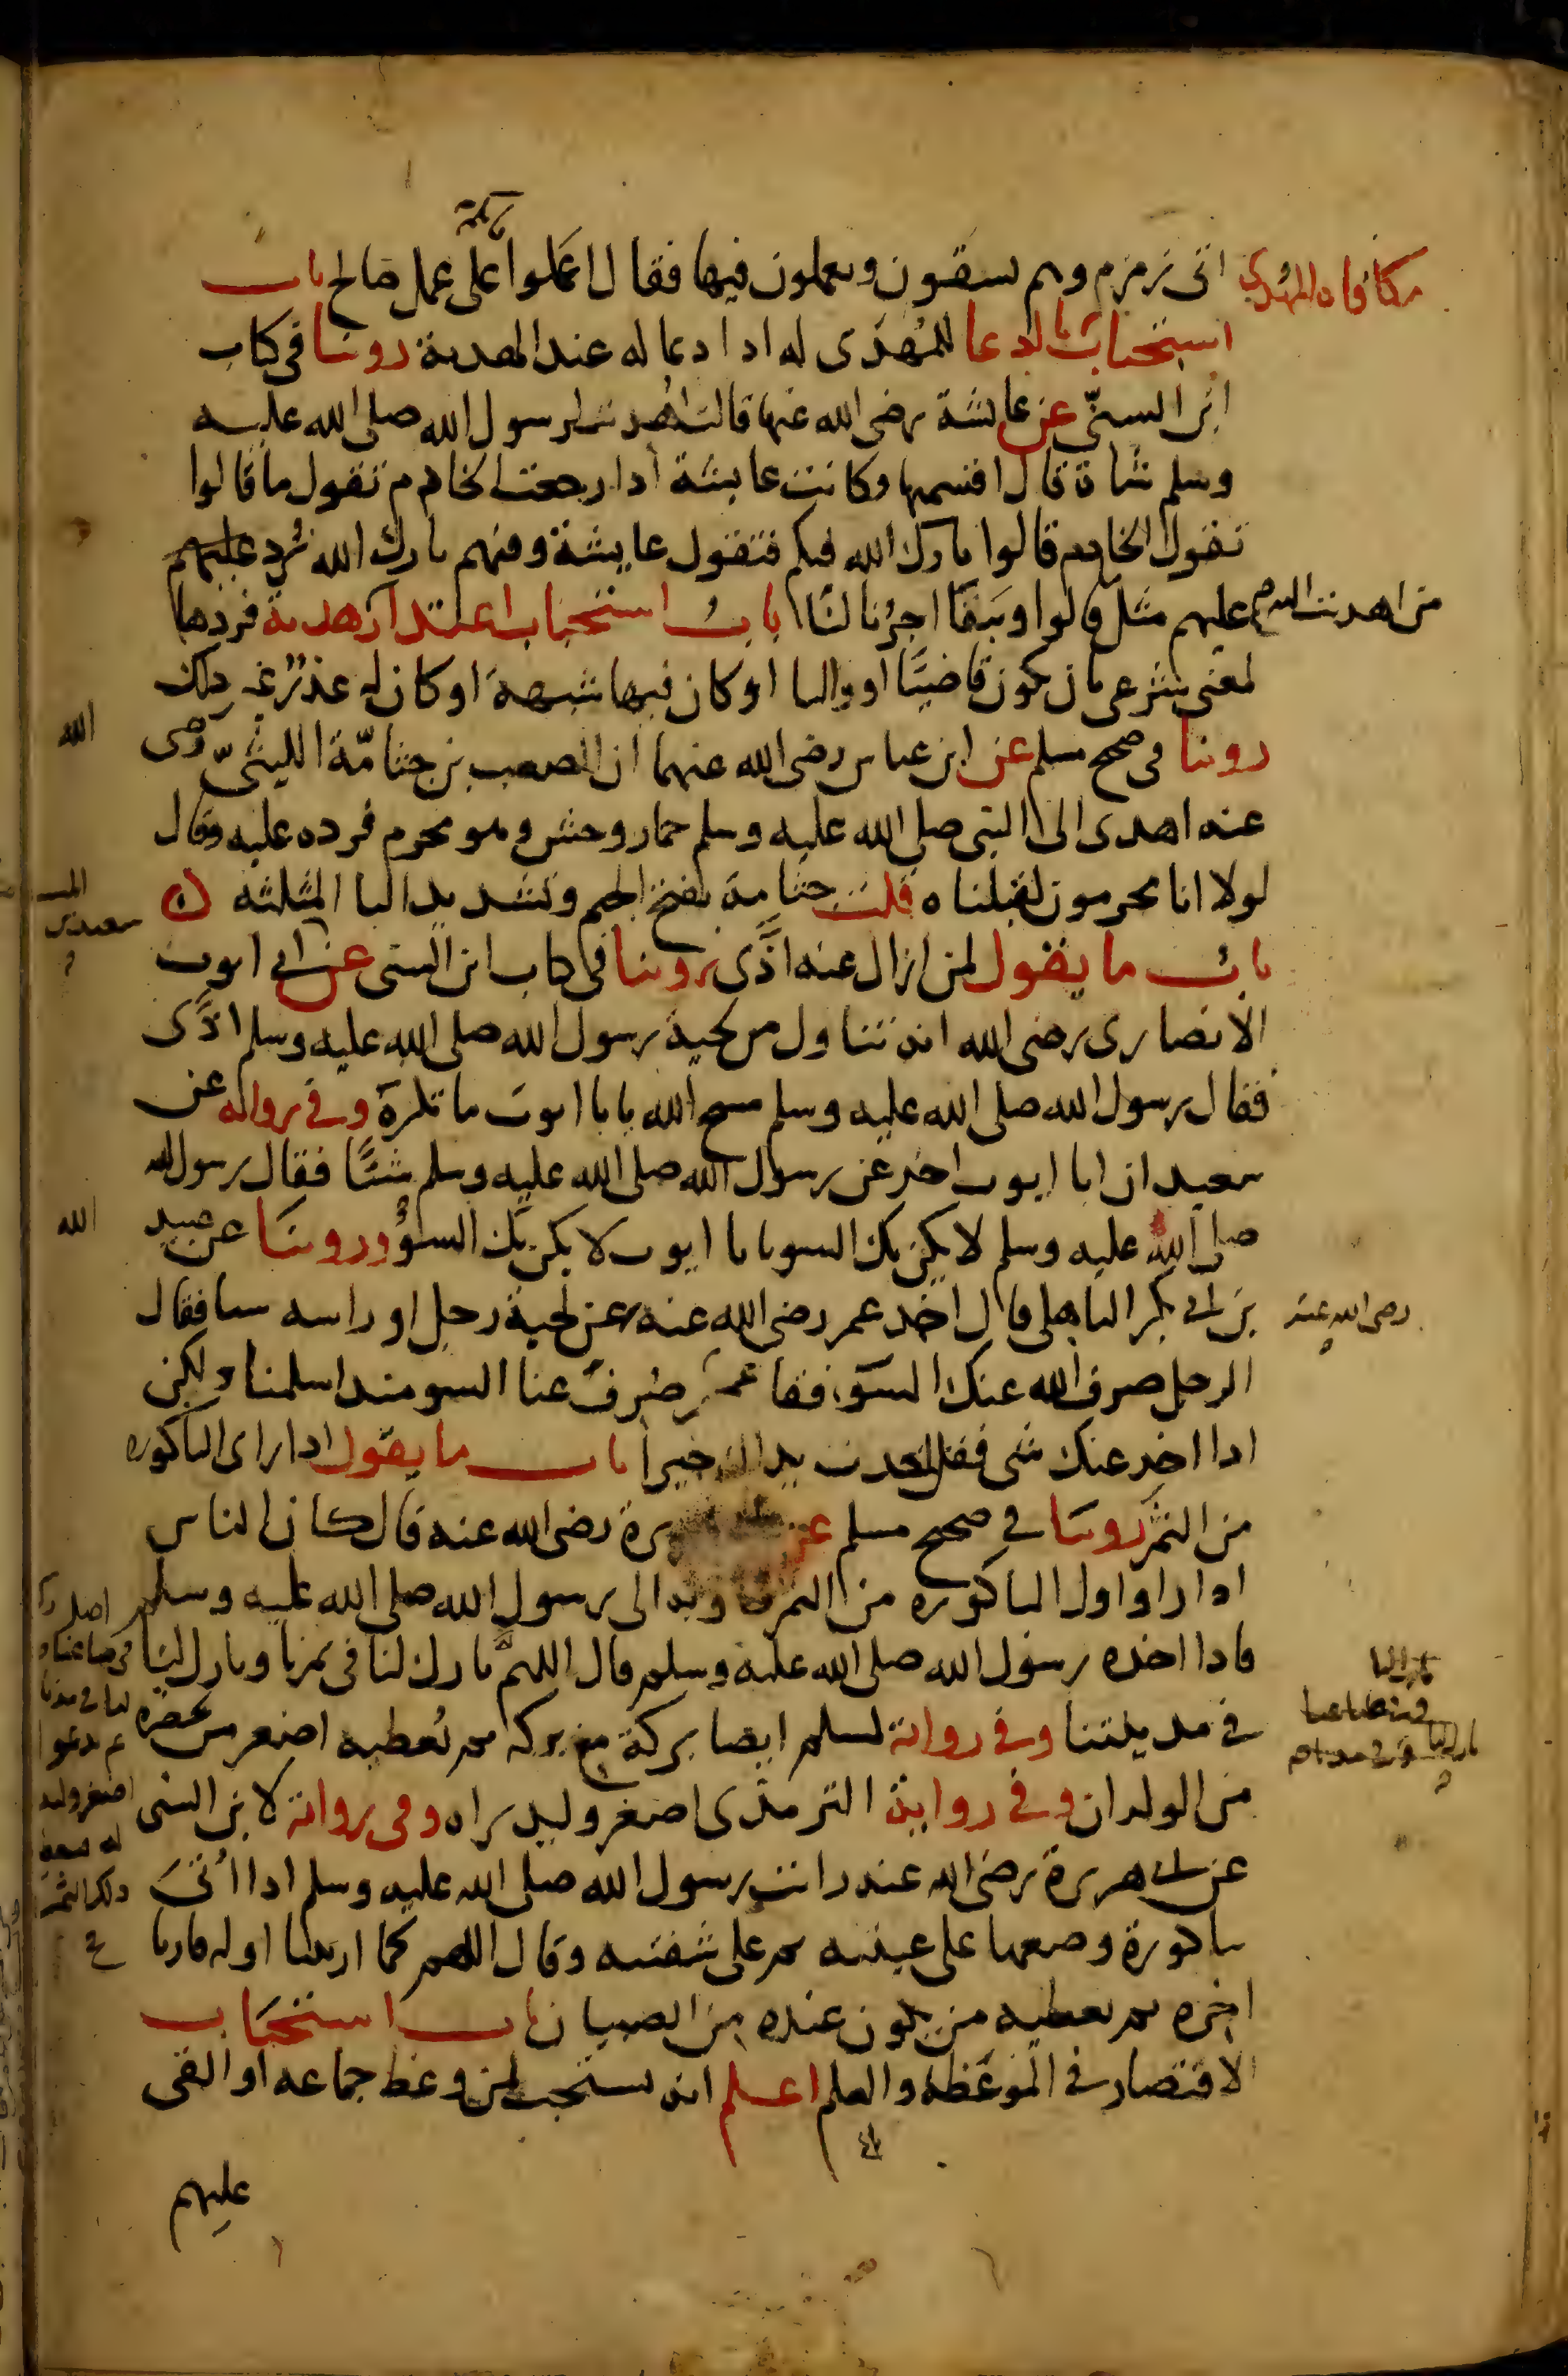 اتى زمزم وهم يسقون ويعملون فيها فقال اعملوا فانكم على عمل صالح باب
مكافاه المهدي
استحباب الدعا للمُهدى له اذا دعا له عند الهدية روينا في كتاب
ابن السنّي عن عائشة رضى الله عنها قالت اُهديت لرسول الله صلى الله عليه
وسلم شاة قال اقسميها وكانت عايشة اذا رجعت الخادم تقول ما قالوا
تقول الخادم قالوا بارك الله فيكم فتقول عايشة وفيهم بارك الله نرد عليهم
عليهم مثل ما قالوا ويبقا اجرُنا لنا باب استحباب اعتذار من اهديت اليه هدية فردها
لمعنى شرعى بان يكون قاضيًا او واليا او كان فيها شبهة او كان له عذر غير ذلك
روينا في صحيح مسلم عن ابن عباس رضى الله عنهما ان الصعب بن جثامّة الليثيّ رضى الله
عنه اهدى الى النبي صلى الله عليه وسلم حمار وحش وهو محرم فرده عليه وقال
لولا انا محرمون لقبلناه قلت جثامة بفتح الجيم وتشديد الثا المثلثه
باب ما يقول لمن ازال عنه اذًى روينا في كتاب ابن السنى عن سعيد بن المسيب عن ابى ايوب
الانصارى رضى الله انه تناول من لحية رسول الله صلى الله عليه وسلم اذًى
فقال رسول الله صلى الله عليه وسلم مسح الله يا با ايوب ما تكره وفي رواية عن
سعيد ان ابا ايوب اخذ عن رسول الله صلى الله عليه وسلم شيئًا فقال رسول الله
صلى الله عليه وسلم لا يكن بك السو يا با ايوب لا يكن بك السوُ وروينا عن عبيد الله
بن ابى بكر الباهلى قال اخذ عمر رضى الله عنه عن لحية رجل او راسه شيا فقال
الرجل صرف الله عنك السوَ فقا عمر رضى الله عنه صُرف عنا السو منذ اسلمنا ولكن
اذا اخذ عنك شى فقل اخذت يداك خيرا باب ما يقول اذا راى الباكوره
من الثمر روينا في صحيح مسلم عن هريرة رضى الله عنه قال كان الناس
اذا راوا اول الباكوره من الثمر جاوا به الى رسول الله صلى الله عليه وسلم
فاذا اخذه رسول الله صلى الله عليه وسلم قال اللهمّ بارك لنا في ثمرنا وبارك لنا
في مدينتنا وفي رواية لمسلم ايضا بركة مع بركه ثم يُعطيه اصغر من يحضره
من الولدان وفي رواية الترمذى اصغر وليد يراه وفي رواية لابن السنى
عن ابى هريرة رضى الله عنه رايت رسول الله صلى الله عليه وسلم اذا اُتىَ
باكورة وضعها على عينيه ثم على شفتيه وقال اللهم كما اريتنا اوله فارنا
اخره ثم يعطيه من يكون عنده من الصبيان باب استحباب
الاقتصار في الموعظه والعلم اعلم انه يستحب لمن وعظ جماعه او القى
عليهم